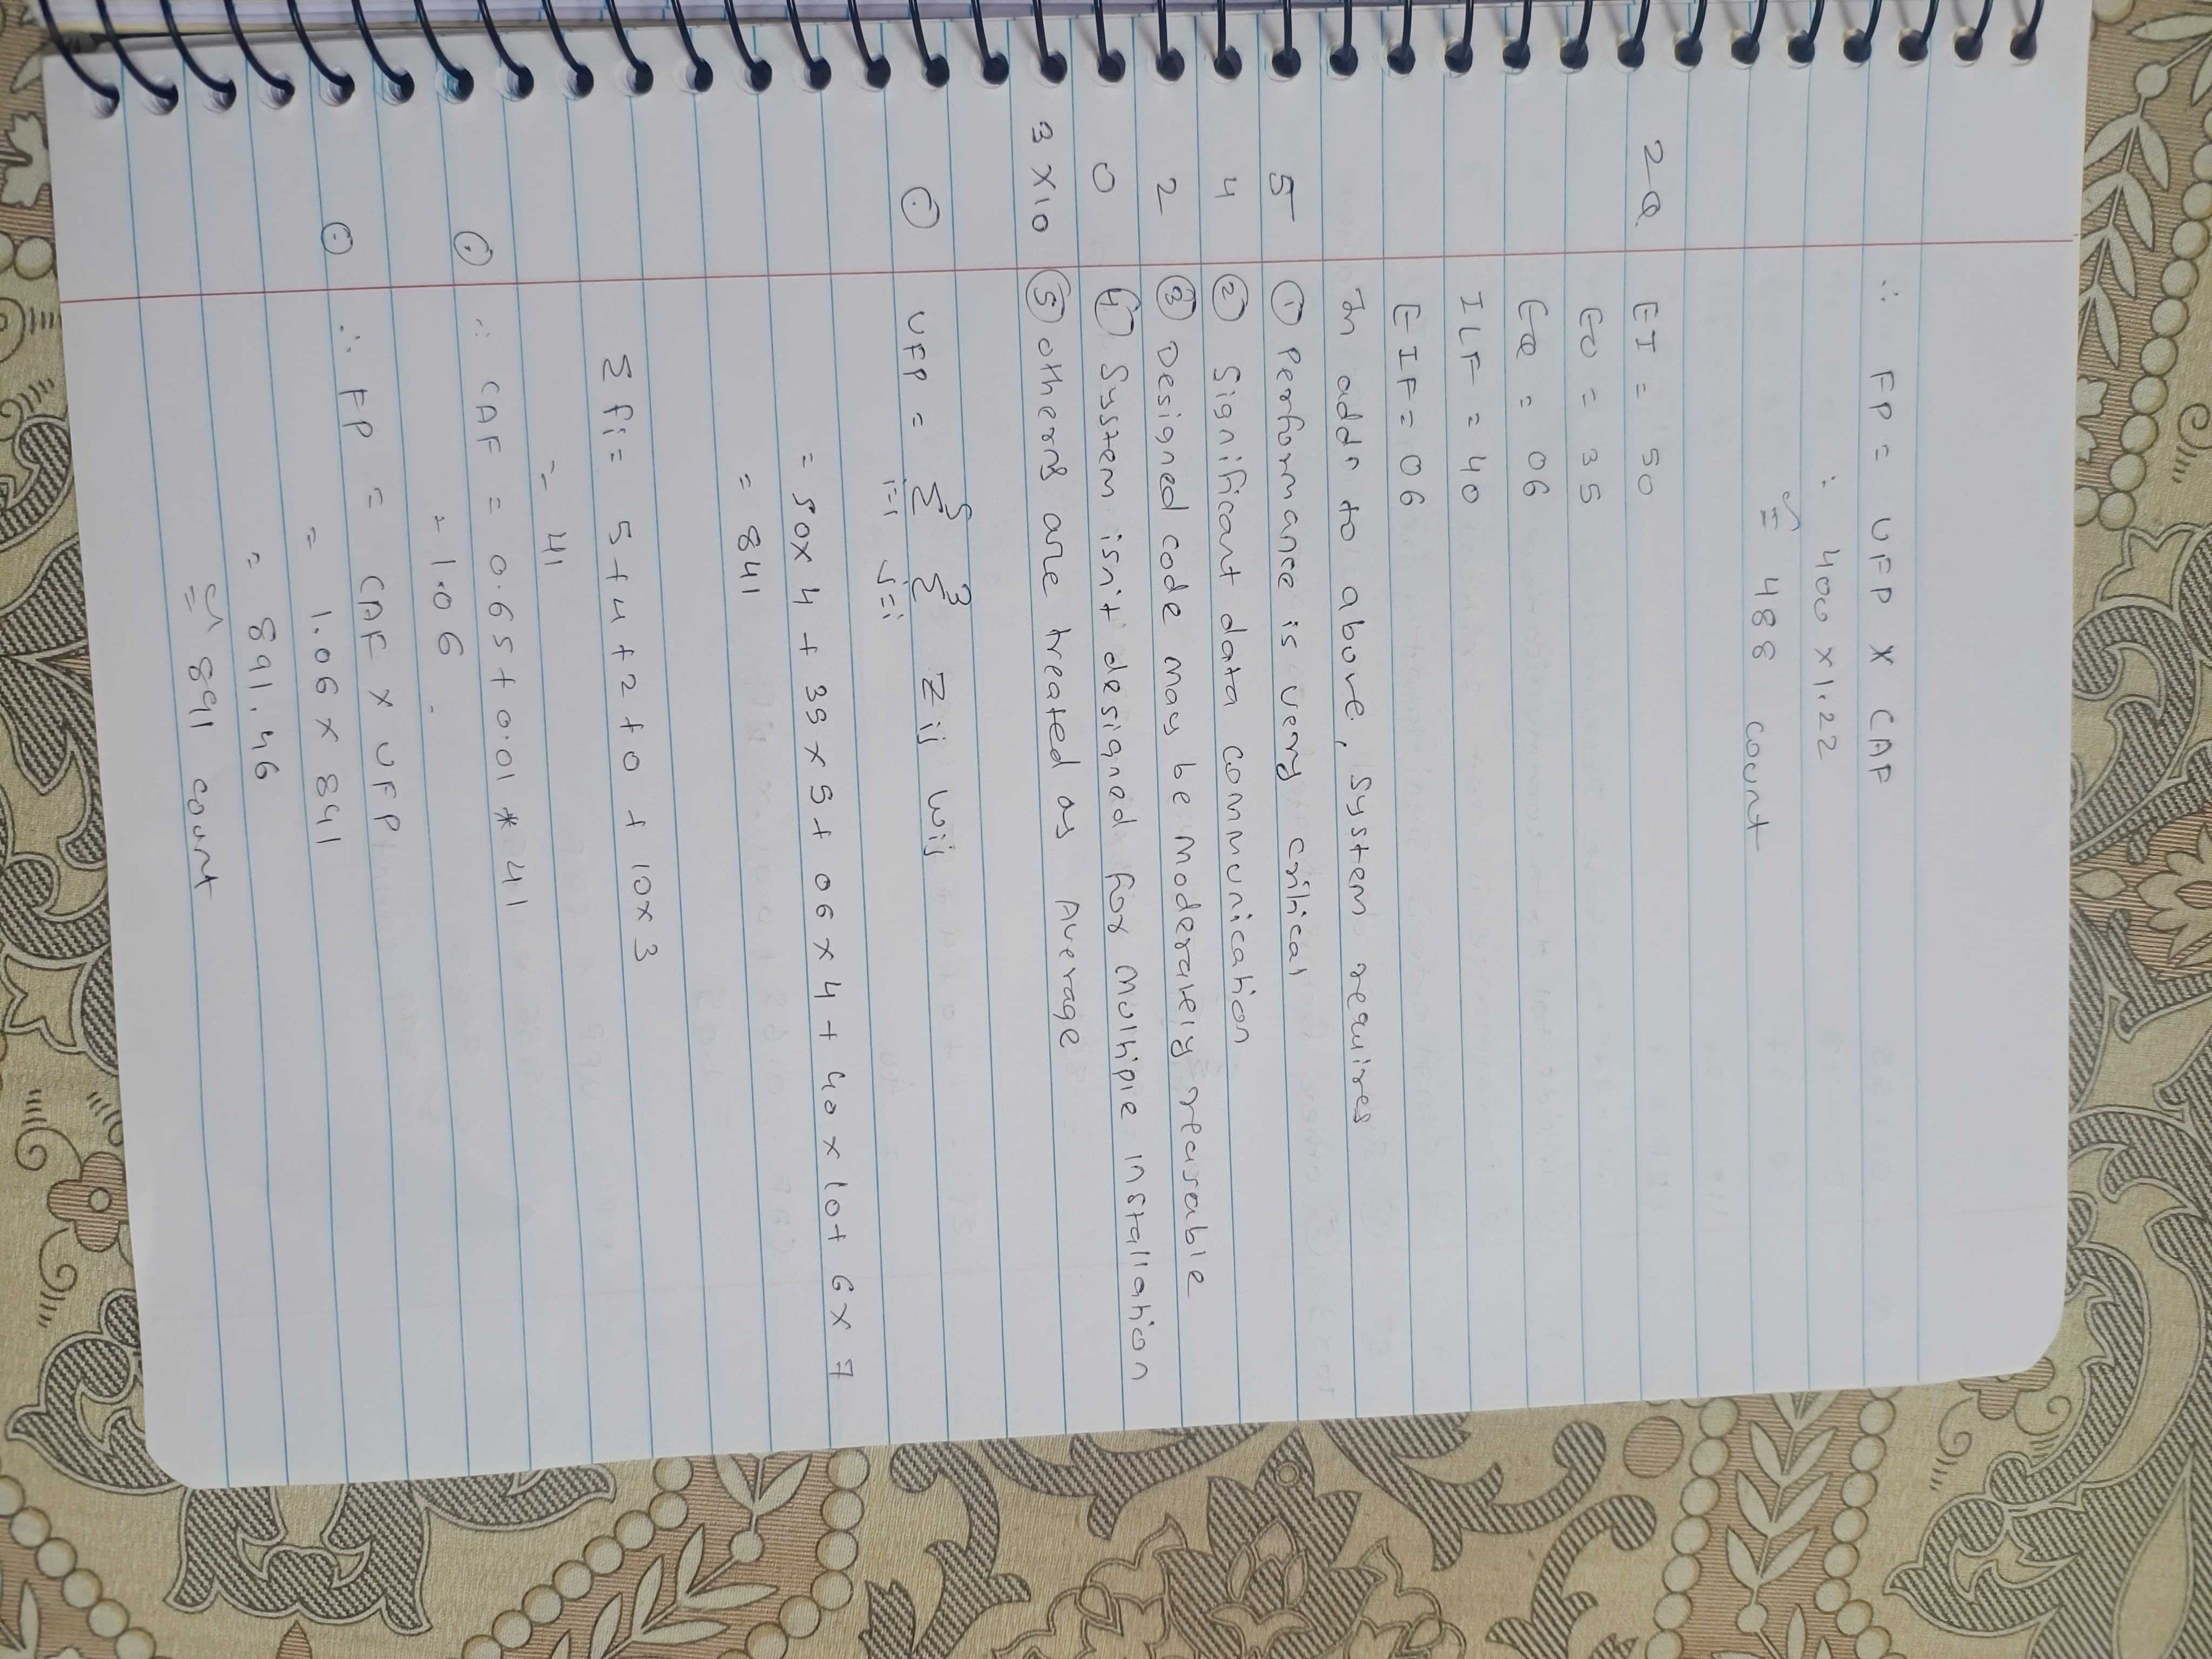 ∴ FP = UFP X CAF
: 400 X1.22
≅ 488 count
2Q EI = 50
EO = 35
EQ = 06
ILF = 40
EIF = 06
In addn to above, system requires
5 ① Performance is very critical
4 ② Significant data communication
2 ③ Designed code may be moderately reusable
0 ④ System isn't designed for multiple installation
3 X10 ⑤ others are treated as Average
① UFP = 5Σi=1 3Σj=i Zij wij
= 50x 4 + 35 x 5+ 06 x 4 + 40 x 10+ 6x 7
= 841
Σ fi = 5 + 4 + 2 + 0 + 10x 3
= 41
∴ CAF = 0.65 + 0.01 * 41
= 1.06
∴ FP = CAF x UFP
= 1.06 x 841
= 891.46
≅ 891 count